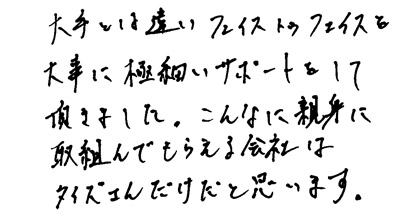 大手とは違いフェイストゥフェイスを
大事に極細いサポートをして
頂きました。こんなに親身に
取組んでもらえる会社は
タイズさんだけだと思います。